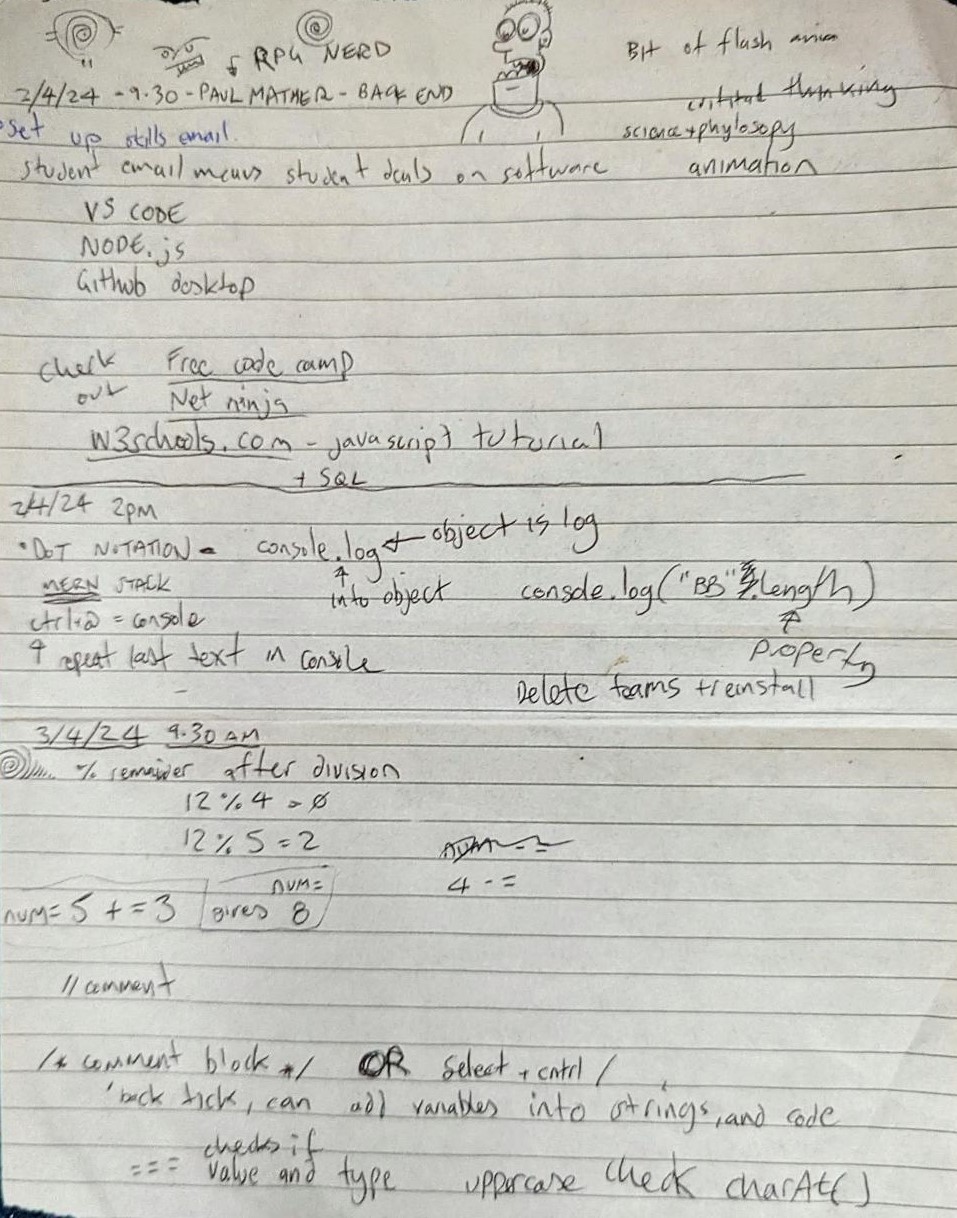 RPG NERD
Bit of flash anim
2/4/24 - 9.30 - PAUL MATHER - BACK END
critital thinking
Set up skills email.
science + phylosopy
student email means student deals on software
animation
VS CODE
NODE.js
Github desktop
check out
Free code camp
Net ninja
W3schools.com - javascript tutorial
+ SQL
2/4/24 2PM
• DOT NOTATION - console.log ← object is log
↑ into object
console.log("BB".length)
↑ Property
MERN STACK
ctrl+@ = console
↑ repeat last text in console
Delete teams + reinstall
3/4/24 9.30 AM
% remaider after division
12 % 4 = 0
12 % 5 = 2
4 - =
num= 5 + = 3
num=
gives 8
// comment
/* comment block */ OR Select + cntrl /
` back tick, can add variables into strings, and code
=== checks if value and type
uppercase check charAt()